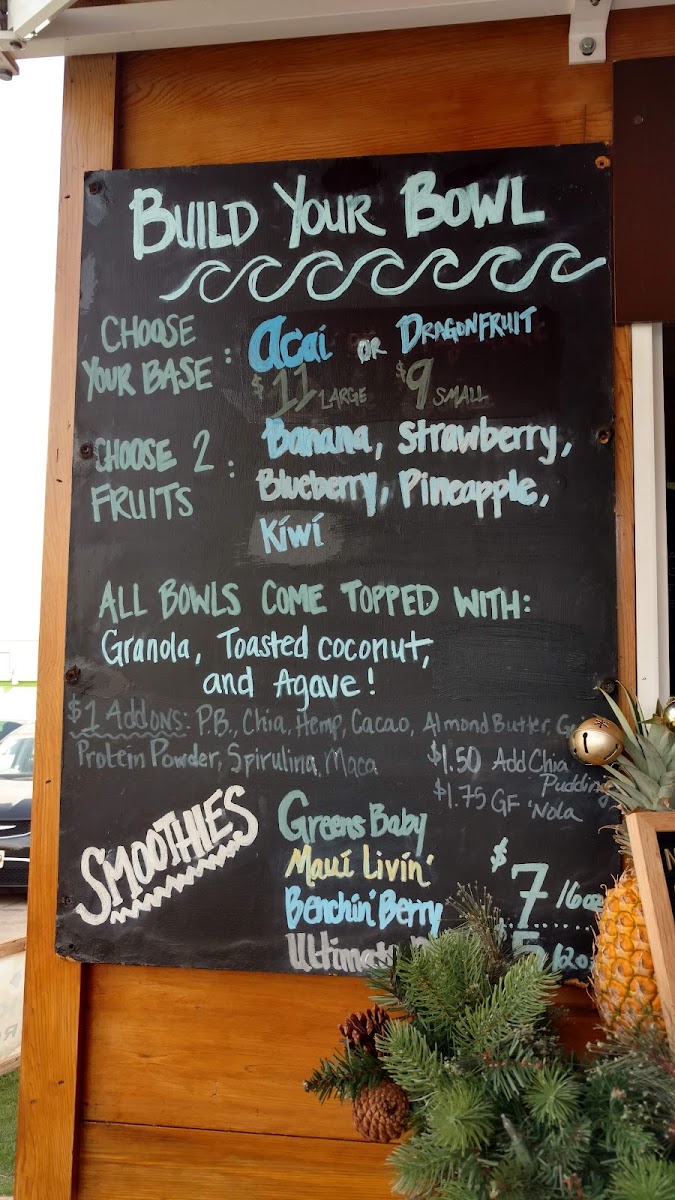 BUILD YOUR BOWL
CHOOSE YOUR BASE : acai OR DRAGONFRUIT
$11 LARGE $9 SMALL
CHOOSE 2 FRUITS : Banana, Strawberry,
Blueberry, Pineapple,
Kiwi
ALL BOWLS COME TOPPED WITH:
Granola, Toasted coconut,
and Agave!
$1 Add ons: P.B., Chia, Hemp, Cacao, Almond Butter,
Protein Powder, Spirulina, Maca
$1.50 Add Chia Pudding
$1.75 GF 'Nola
SMOOTHIES
Greens Baby
Maui Livin'
Benchin' Berry
Ultimate
$7 16oz
5 12oz